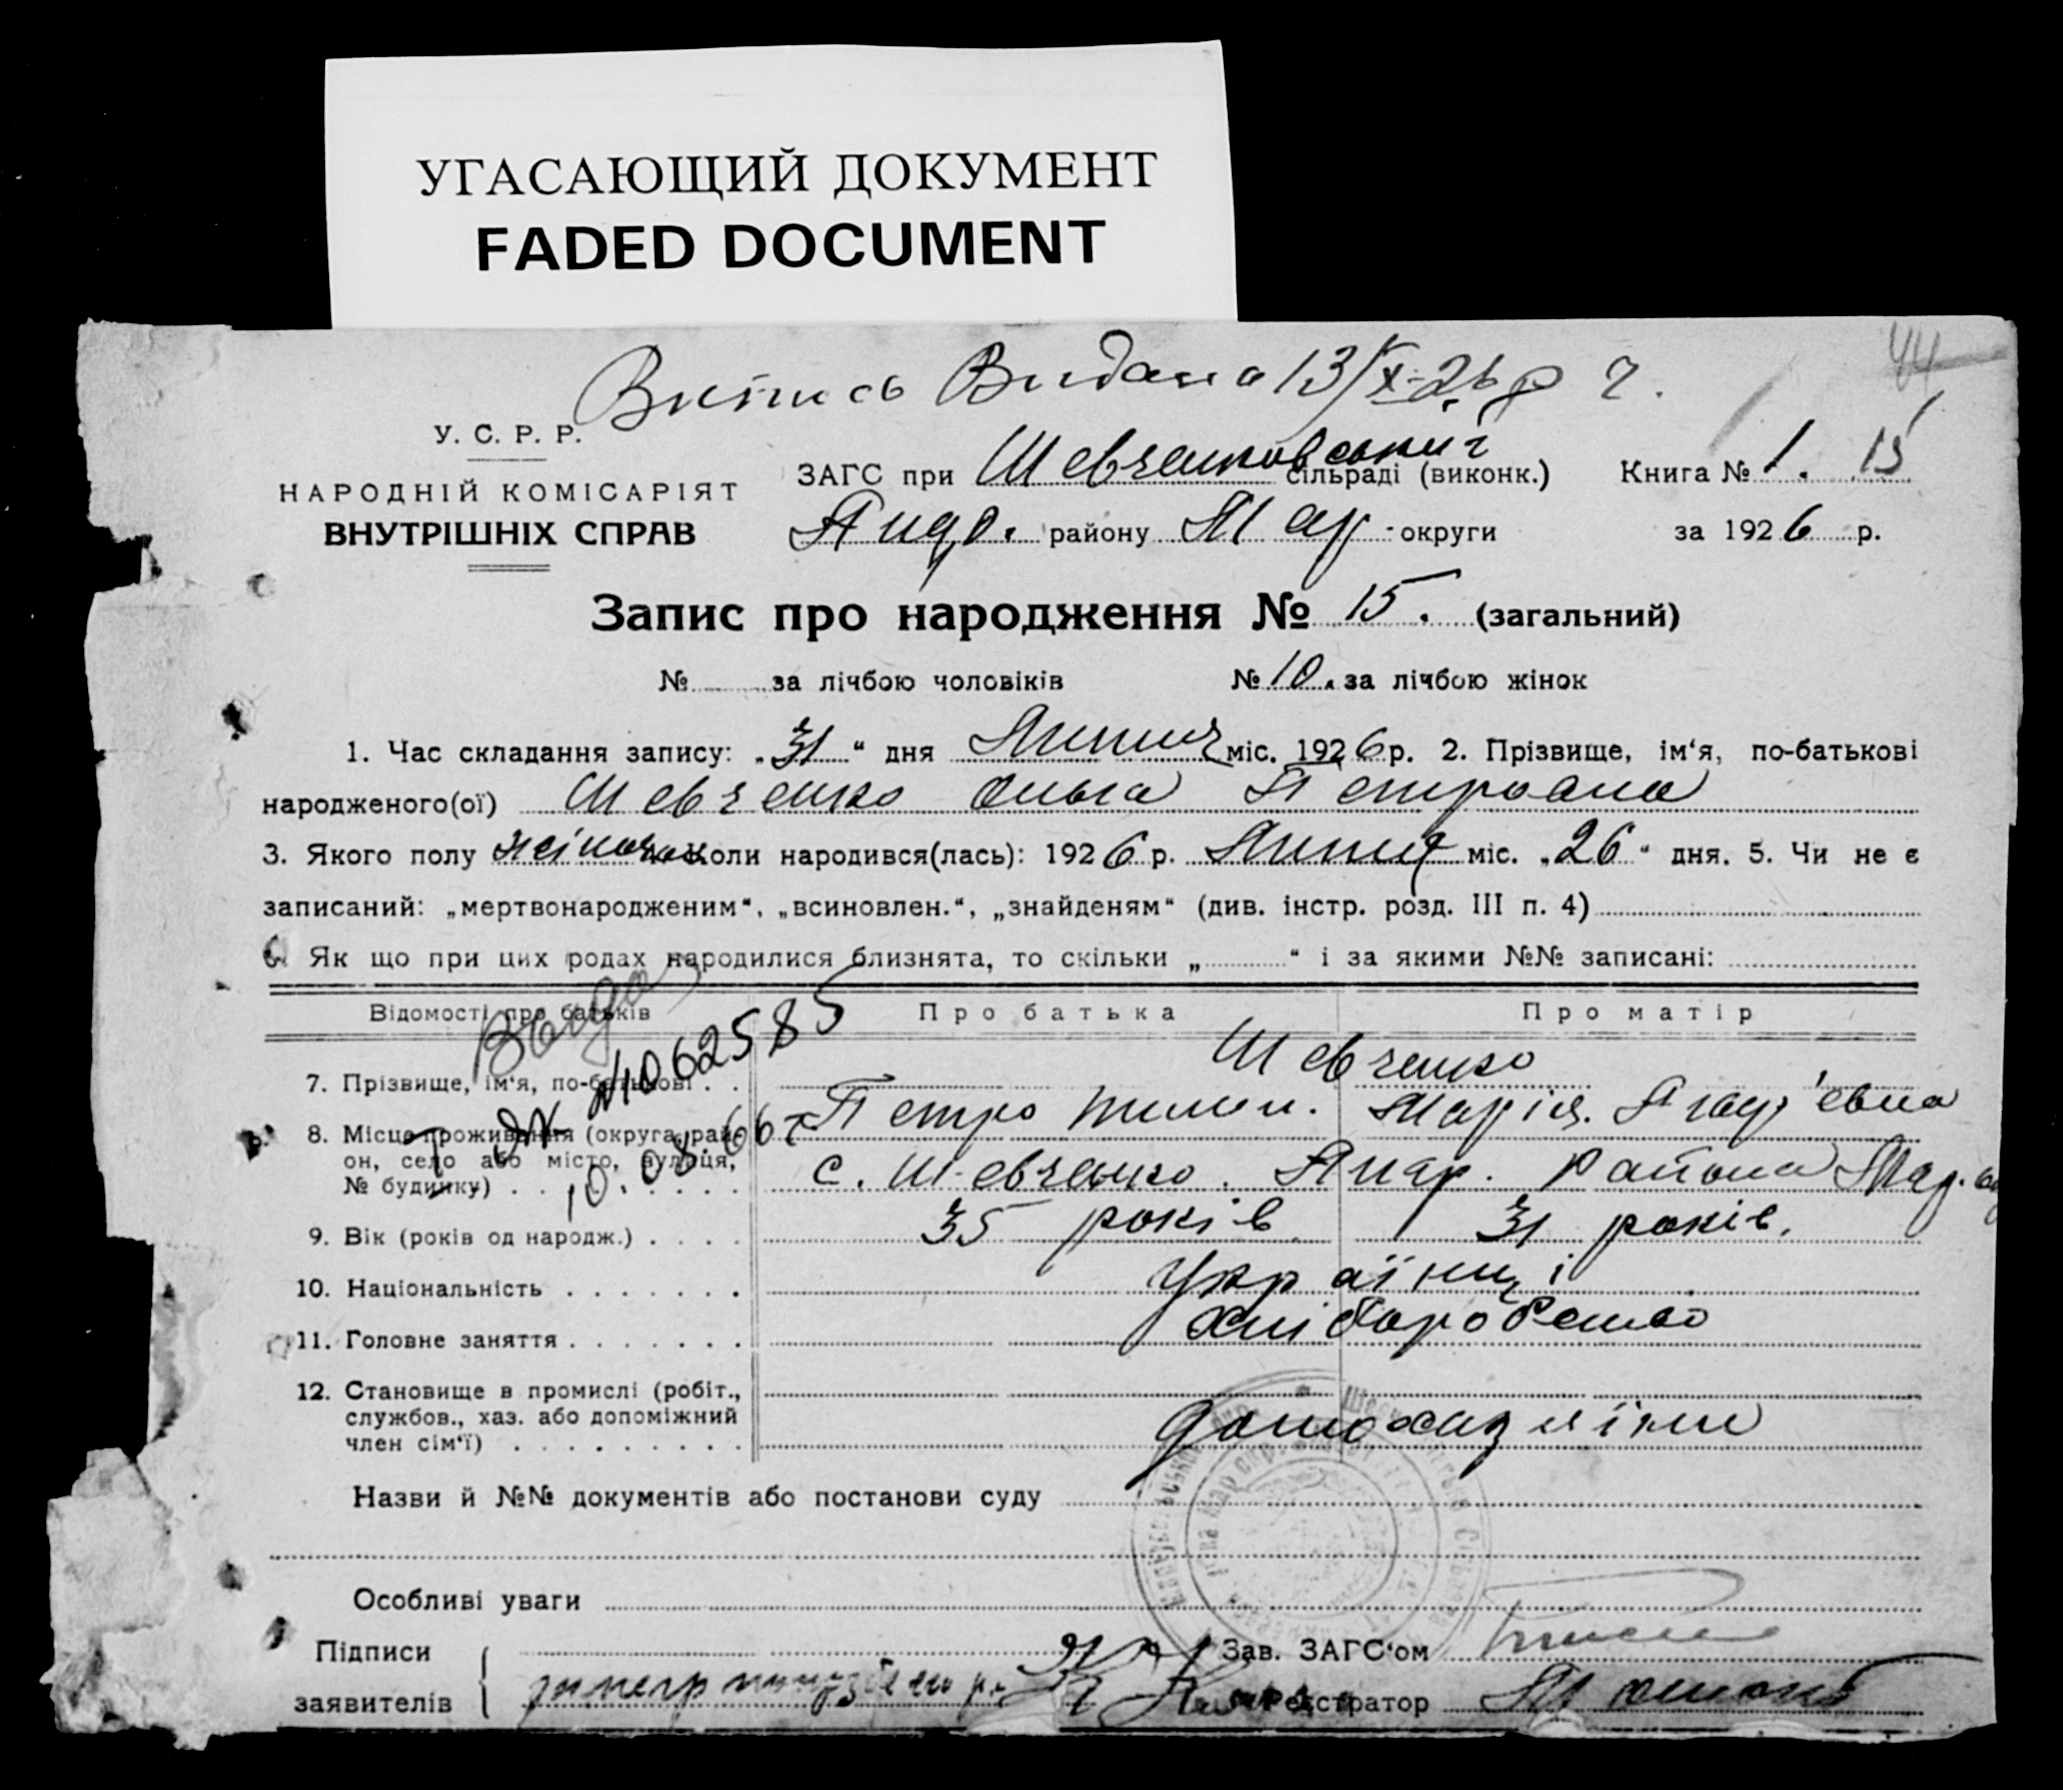 УГАСАЮЩИЙ ДОКУМЕНТ
FADED DOCUMENT
44
Витпись Видана 13/IX-26 р
У. С. Р. Р.
НАРОДНІЙ КОМІСАРІЯТ
ВНУТРІШНІХ СПРАВ
ЗАГС при Шевченковський сільраді (виконк.) Книга № 1. 15
району Мар округи за 1926 р.
Запис про народження № 15. (загальний)
№ за лічбою чоловіків № 10. за лічбою жінок
1. Час складання запису: „31“ дня Липня міс. 1926 р. 2. Прізвище, ім‘я, по-батькові
народженого(ої) Шевченко Ольга Петровна
3. Якого полу жіночок коли народився(лась): 1926 р. Липня міс. „26“ дня. 5. Чи не є
записаний: „мертвонародженим“, „всиновлен.“, „знайденям“ (див. інстр. розд. III п. 4)
6. Як що при цих родах народилися близнята, то скільки „ “ і за якими №№ записані:
Відомості про батьків Про батька Про матір
7. Прізвище, ім‘я, по-батькові . . Шевченко
Петро Тимон. Марія
8. Місце проживання (округа, рай-
он, село або місто, вулиця,
№ будинку) с. Шевченко. района
N1062585
10.08.66 г
9. Вік (років од народж.) . . . . 35 років 31 років.
10. Національність . . . . . . . Українці
11. Головне заняття . . . . . . . Хліборобство
12. Становище в промислі (робіт.,
службов., хаз. або допоміжний
член сім‘ї) . . . . . . . . . домохазяїни
Назви й №№ документів або постанови суду
Особливі уваги
Підписи
заявителів
Зав. ЗАГС‘ом
Реєстратор